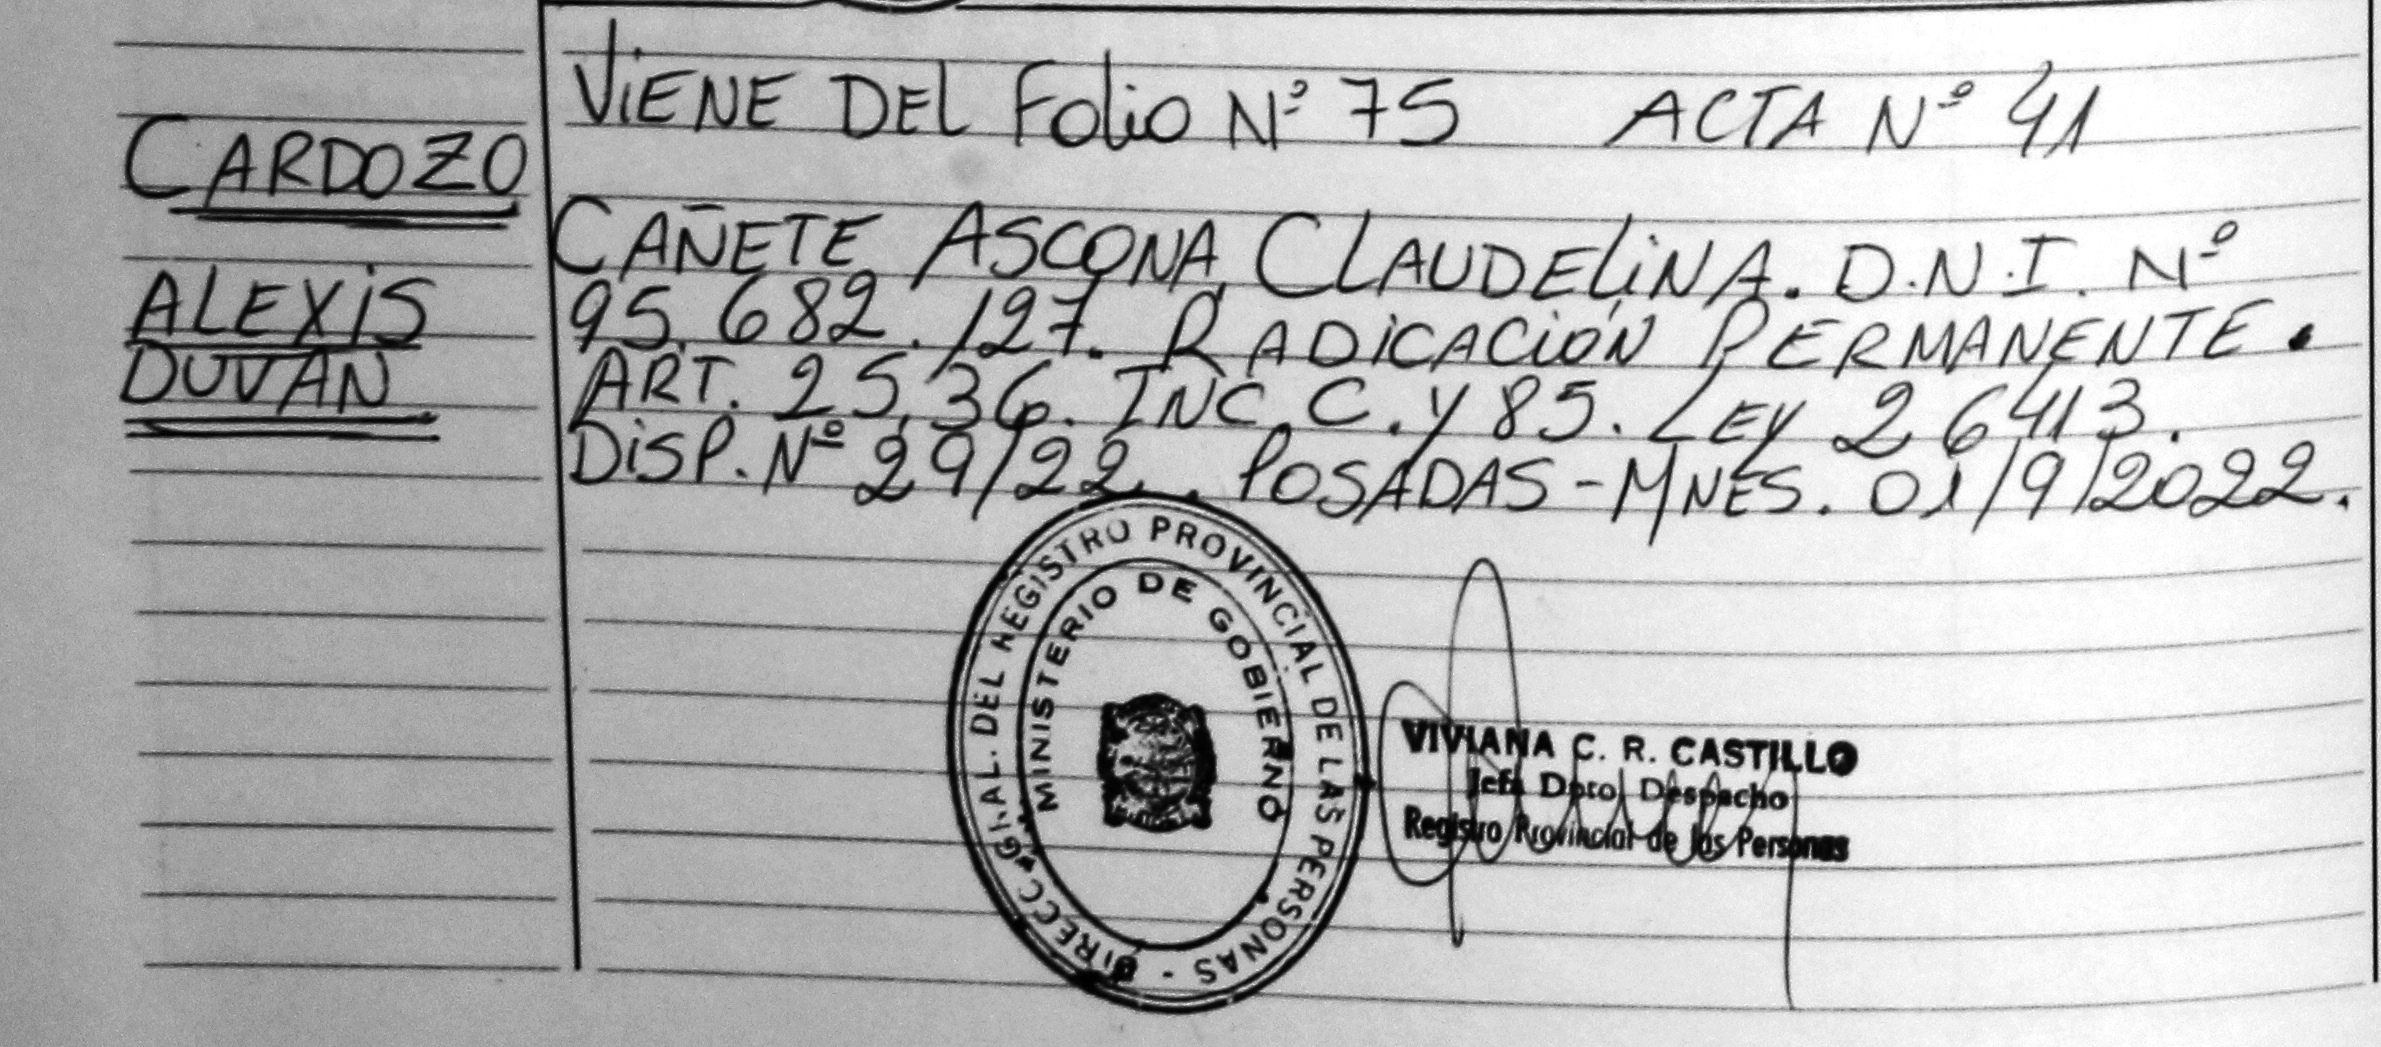 VIENE DEL FOLIO Nº 75 ACTA Nº 41
CARDOZO
ALEXIS
DUVAN
CAÑETE ASCONA, CLAUDELINA. D.N.I. Nº
95.682.127. RADICACIÓN PERMANENTE.
ART. 25, 36. INC. C. y 85. LEY 26413.
DISP. Nº 29/22. POSADAS-MNES. 01/9/2022.
DIRECC. GRAL. DEL REGISTRO PROVINCIAL DE LAS PERSONAS -
MINISTERIO DE GOBIERNO
VIVIANA C. R. CASTILLO
Jefa Dpto. Despacho
Registro Provincial de las Personas